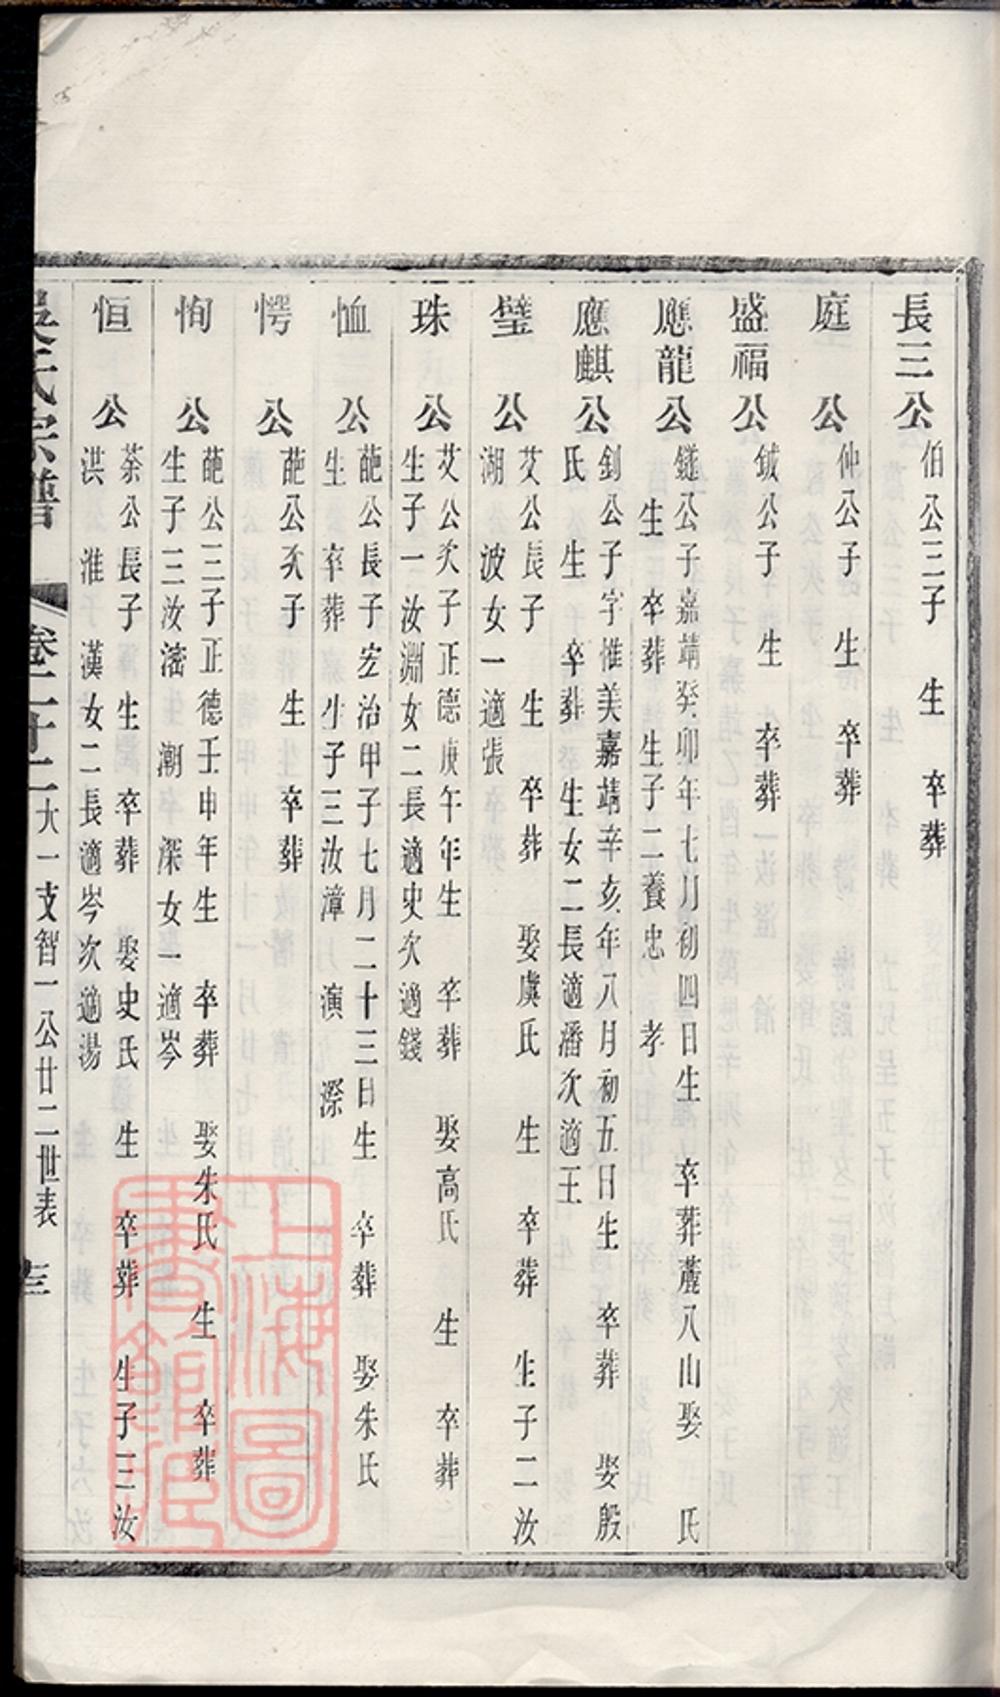 長三公 伯公三子 生 卒葬
庭 公 仲公子 生 卒葬
盛福公 鉞公子 生 卒葬
應龍公 鐩公子嘉靖癸卯年七月初四日生 卒葬蘆八山娶 氏
生 卒葬 生子二養忠 孝
應麒公 釗公子字惟美嘉靖辛亥年八月初五日生 卒葬 娶殷
氏 生 卒葬 生女二長適潘次適王
璧 公 艾公長子 生 卒葬 娶虞氏 生 卒葬 生子二汝
湖 波女一適張
珠 公 艾公次子正德庚午年生 卒葬 娶高氏 生 卒葬
生子一汝淵女二長適史次適錢
恤 公 葩公長子宏治甲子七月二十三日生 卒葬 娶朱氏
生 卒葬 生子三汝漳 演 深
愕 公 葩公次子 生 卒葬
恂 公 葩公三子正德壬申年生 卒葬 娶朱氏 生 卒葬
生子三汝濤 潮 深女一適岑
恒 公 荼公長子 生 卒葬 娶史氏 生 卒葬 生子三汝
洪 淮 漢女二長適岑次適湯
吳氏宗譜 卷二十二大一支智一公廿二世表 三
上海圖書館藏